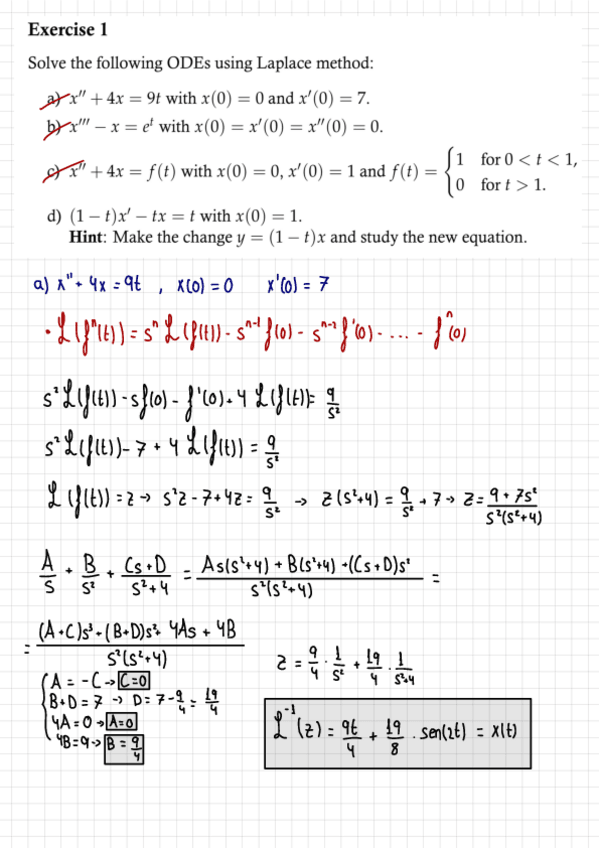 Exercise 1
Solve the following ODEs using Laplace method:
a) x'' + 4x = 9t with x(0) = 0 and x'(0) = 7.
b) x''' − x = e^t with x(0) = x'(0) = x''(0) = 0.
c) x'' + 4x = f(t) with x(0) = 0, x'(0) = 1 and f(t) = { 1 for 0 < t < 1,
0 for t > 1.
d) (1 − t)x' − tx = t with x(0) = 1.
Hint: Make the change y = (1 − t)x and study the new equation.
a) x'' + 4x = 9t , x(0) = 0 x'(0) = 7
· L(f^n(t)) = s^n L(f(t)) - s^(n-1) f(0) - s^(n-2) f'(0) - ... - f^n(0)
s² L(f(t)) - sf(0) - f'(0) + 4 L(f(t)) = 9/s²
s² L(f(t)) - 7 + 4 L(f(t)) = 9/s²
L(f(t)) = z → s²z - 7 + 4z = 9/s² → z(s²+4) = 9/s² + 7 → z = (9 + 7s²)/(s²(s²+4))
A/s + B/s² + (Cs+D)/(s²+4) = (As(s²+4) + B(s²+4) + (Cs+D)s²)/(s²(s²+4)) =
= ((A+C)s³ + (B+D)s² + 4As + 4B)/(s²(s²+4))
A = -C → C=0
B+D = 7 → D = 7 - 9/4 = 19/4
4A = 0 → A=0
4B = 9 → B = 9/4
z = 9/4 · 1/s² + 19/4 · 1/(s²+4)
L^-1(z) = 9t/4 + 19/8 · sen(2t) = x(t)